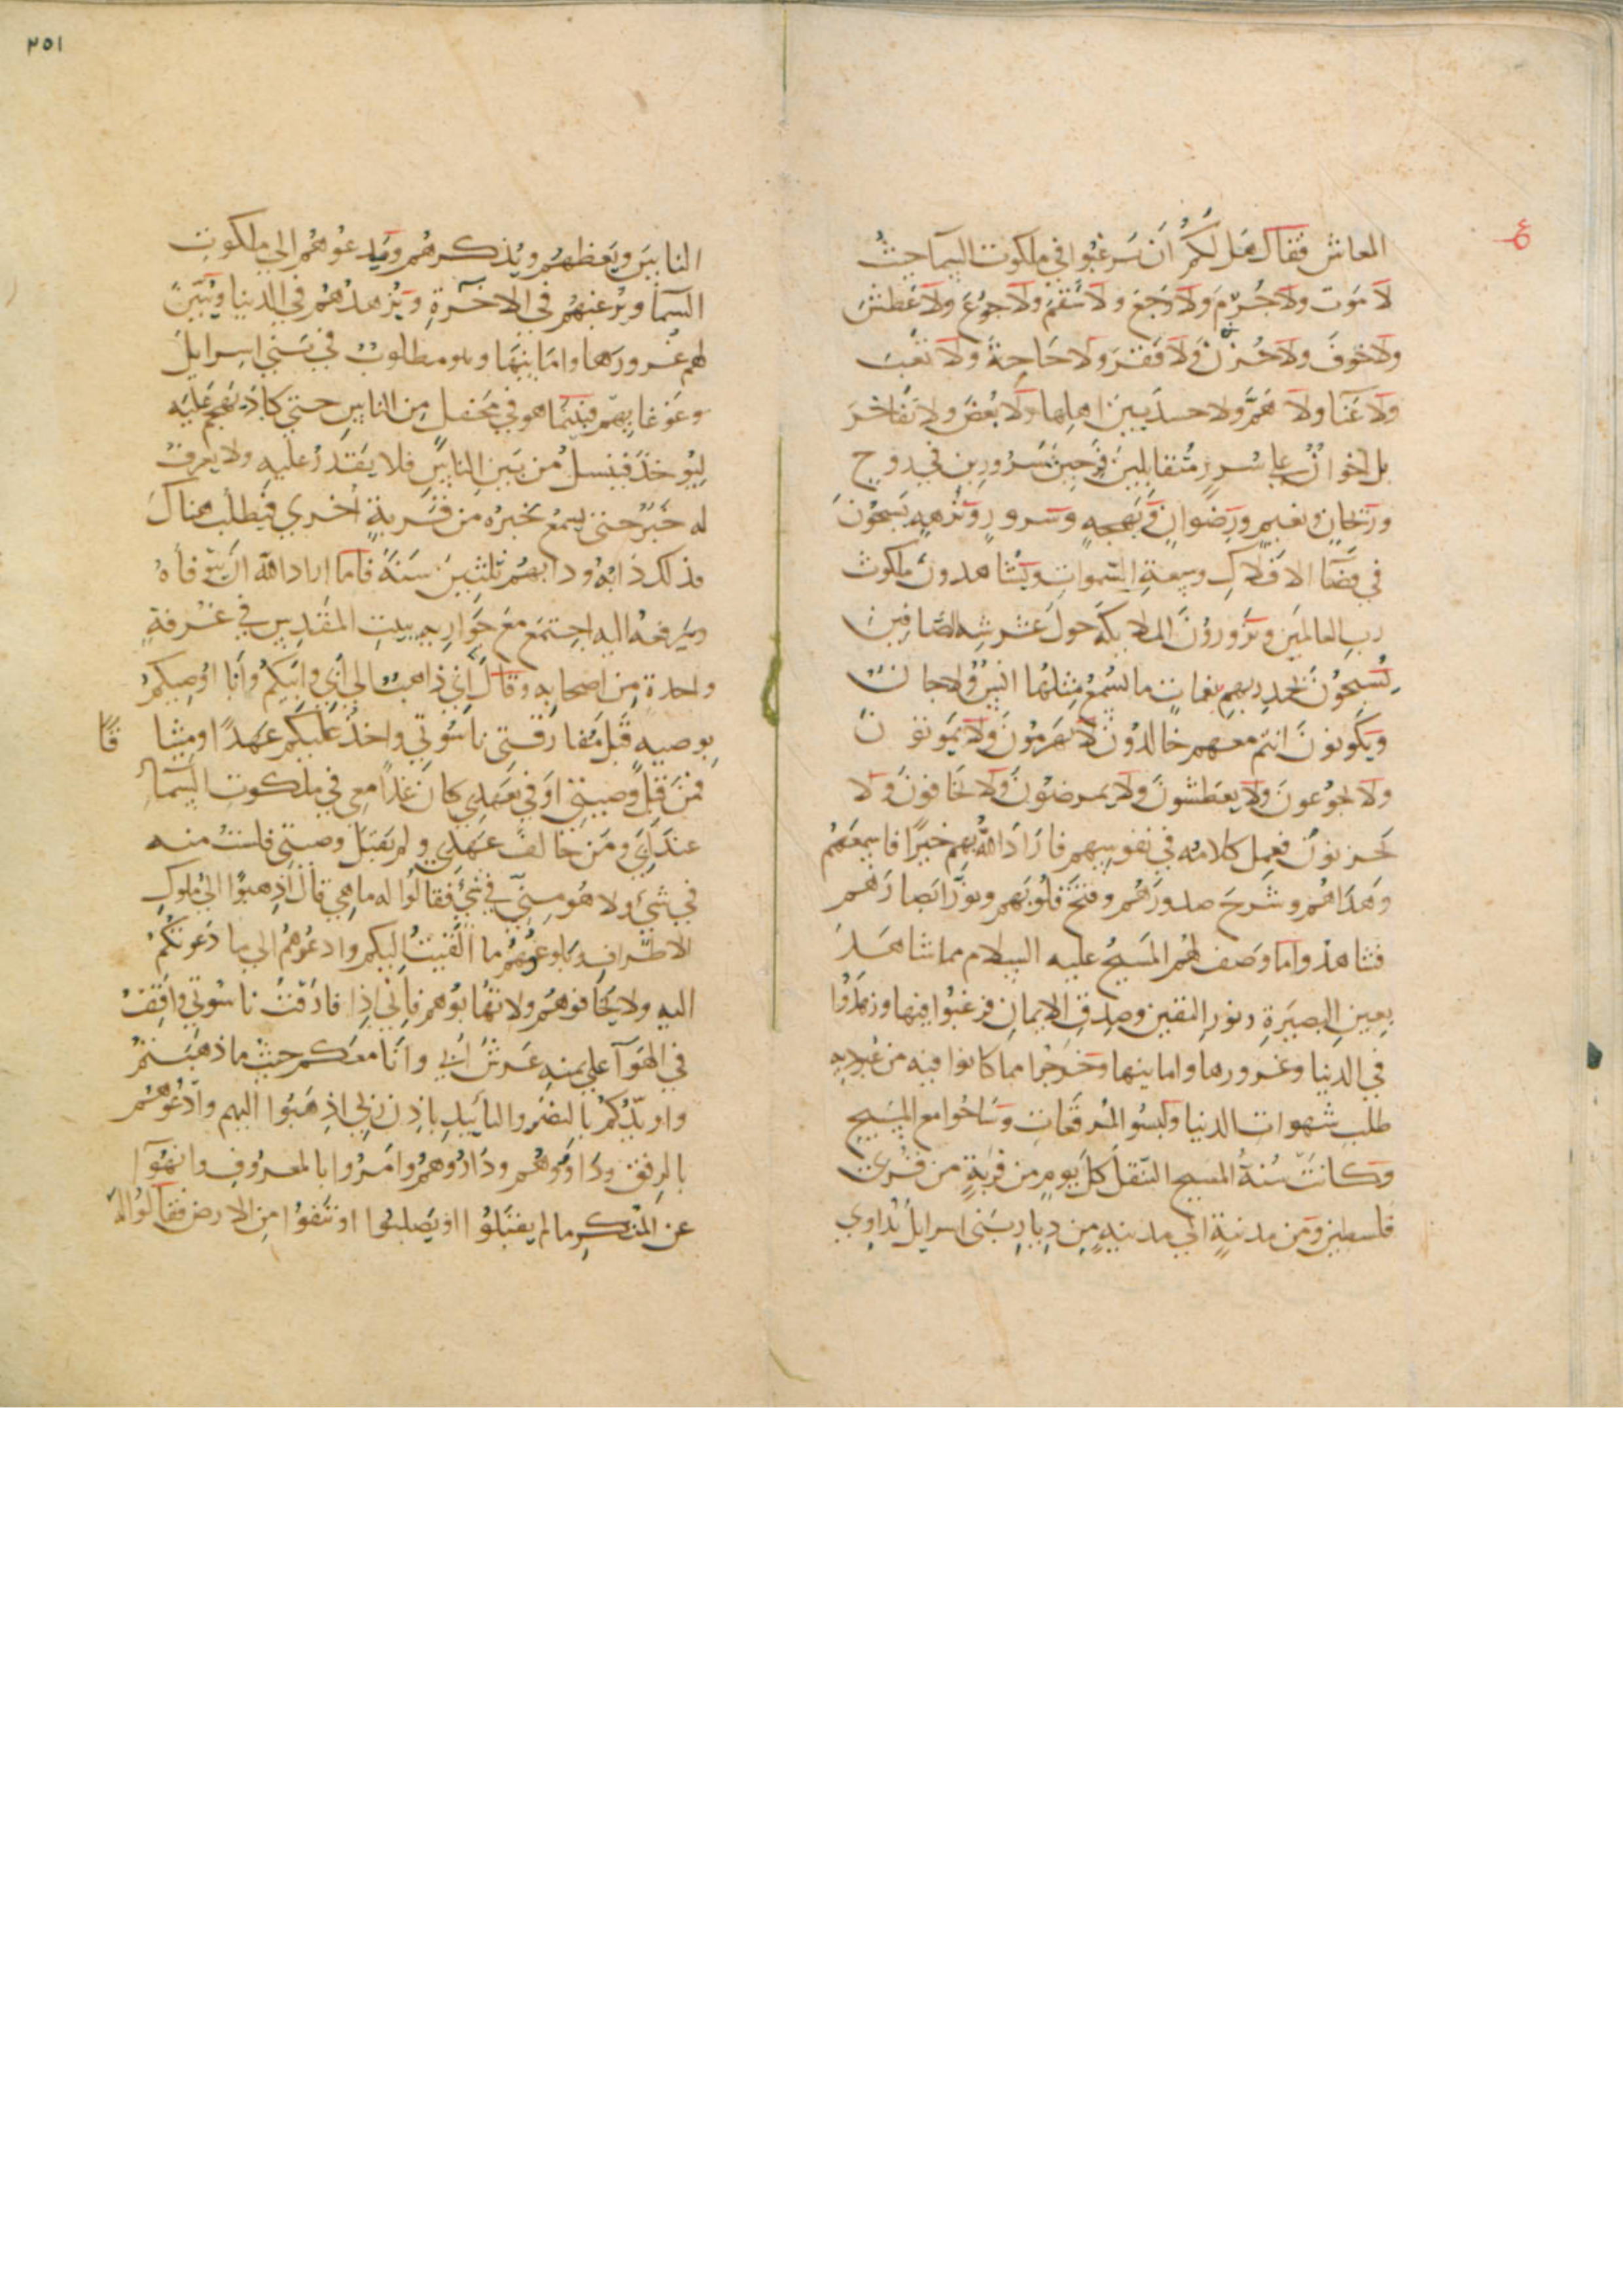 المعاش فقال هل لكم أن ترغبوا في ملكوت السما حيثُ
لا موت ولا هرم ولا وجع ولا سقم ولا جوع ولا عطش
ولا خوف ولا حزن ولا فقر ولا حاجة ولا تعب
ولا عنا ولا هم ولا حسد بين اهلها ولا بغض ولا تفاخر
بل اخوان على سرر متقابلين فرحين مسرورين في روح
وريحان ونعيم ورضوان وبهجه وسرور ونزهه يسبحون
في فضا الافلاك وسعة السموات ويشاهدون ملكوت
رب العالمين ويزورون الملايكة حول عرشه الصافين
يسبحون بحمد ربهم بنغمات ما يسمع مثلها انس ولا جان
ويكونون انتم معهم خالدون لا يهرمون ولا يموتون
ولا يجوعون ولا يعطشون ولا يمرضون ولا يخافون ولا
يحزنون فعمل كلامه في نفوسهم فاراد الله بهم خيرًا فاسمعهم
وهداهم وشرح صدورهم وفتح قلوبهم ونور ابصارهم
فشاهدوا ما وصف لهم المسيح عليه السلام مما شاهد
بعين البصيرة ونور اليقين وصدق الايمان فرغبوا فيها وزهدوا
في الدنيا وغرورها وامانيها وخرجوا مما كانوا فيه من عبوديه
طلب شهوات الدنيا ولبسوا المرقعات وساحوا مع المسيح
وكانت سنة المسيح التنقل كل يوم من قرية من قرى
فلسطين ومن مدينة الي مدينه من ديار بني اسرايل يداوي
٢٥١
الناس ويعظهم ويذكرهم ويدعوهم الي ملكوت
السما ويرغبهم في الاخرة ويزهدهم في الدنيا ويبين
لهم غرورها وامانيها وهو مطلوب في بني اسرايل
وغوغايهم فبينما هو في محفل من الناس حتي كاد يهجم عليه
ليوخذ فينسل من بين الناس فلا يقدر عليه ولا يعرف
له خبر حتى يسمع بخبره من قرية أخري فيطلب هناك
فذلك دابه ودابهم ثلثين سنة فلما اراد الله ان يتوفاه
ويرفعه اليه اجتمع مع حواريه ببيت المقدس في غرفة
واحدة من اصحابه وقال اني ذاهب الي ابي وابيكم وانا اوصيكم
بوصيه قبل مفارقتي ناسوتي واخذ عليكم عهدًا وميثاقًا
فمن قبل وصيتي اوفي بعهدي كان غدًا معي في ملكوت السما
عند ابي ومن خالف عهدي ولم يقبل وصيتي فلست منه
في شي ولا هو مني في شي فقالوا له ما هي قال اذهبوا الى ملوك
الاطراف وبلغوهم ما القيت اليكم وادعوهم الى ما دعوتكم
اليه ولا تخافوهم ولا تهابوهم فاني اذا فارقت ناسوتي واقف
في الهوآ علي يمنه عرش ابي وانا معكم حيث ما ذهبتم
واويدكم بالنصر والتاييد باذن ربي اذهبوا اليهم وادعوهم
بالرفق وداووهم وداروهم وامروا بالمعروف وانهوآ
عن المنكر ما لم يقتلوا او يصلبوا او تنفوا من الارض فقالوا له